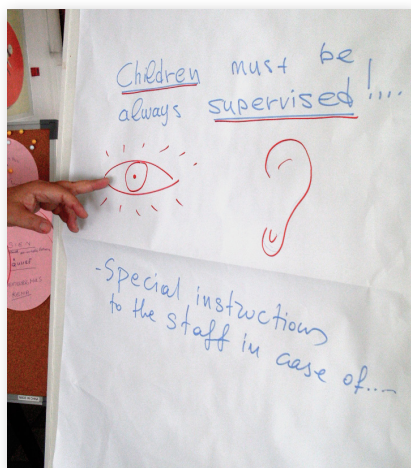 Children must be
always supervised!....
-Special instructions
to the staff in case of....